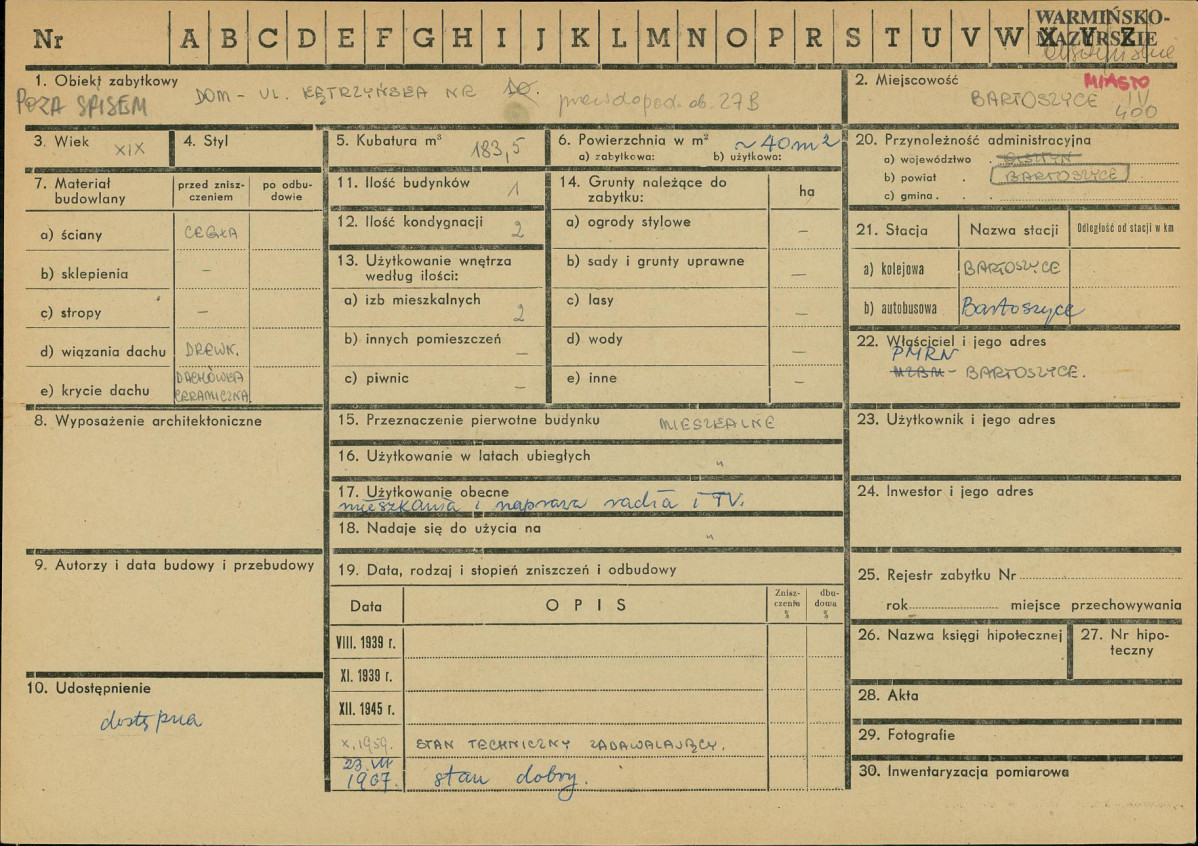 Nr A B C D E F G H I J K L M N O P R S T U V W X Y Z
WARMIŃSKO-
MAZURSKIE
1. Obiekt zabytkowy
DOM – UL. KĘTRZYŃSKA NR
POZA SPISEM
prawdopod. ob. 27B
2. Miejscowość
MIASTO
BARTOSZYCE
400
3. Wiek XIX
4. Styl
5. Kubatura m³ 183,5
6. Powierzchnia w m² ~40m2
a) zabytkowa: b) użytkowa:
7. Materiał budowlany
przed znisz-
czeniem
po odbu-
dowie
a) ściany CEGŁA
b) sklepienia –
c) stropy –
d) wiązania dachu DREWN.
e) krycie dachu DACHÓWKA
CERAMICZNA
8. Wyposażenie architektoniczne
9. Autorzy i data budowy i przebudowy
10. Udostępnienie
dostępna
11. Ilość budynków 1
12. Ilość kondygnacji 2
13. Użytkowanie wnętrza
według ilości:
a) izb mieszkalnych 2
b) innych pomieszczeń –
c) piwnic –
14. Grunty należące do
zabytku:
ha
a) ogrody stylowe –
b) sady i grunty uprawne –
c) lasy –
d) wody –
e) inne –
15. Przeznaczenie pierwotne budynku MIESZKALNE
16. Użytkowanie w latach ubiegłych "
17. Użytkowanie obecne
mieszkania i naprawa radia i TV.
18. Nadaje się do użycia na "
19. Data, rodzaj i stopień zniszczeń i odbudowy
Data OPIS
Znisz-
czenia
%
dbu-
dowa
%
VIII. 1939 r.
XI. 1939 r.
XII. 1945 r.
X. 1959. STAN TECHNICZNY ZADAWALAJĄCY.
23.VII
1967. stan dobry.
20. Przynależność administracyjna
a) województwo . OLSZTYN
b) powiat . BARTOSZYCE
c) gmina .
21. Stacja
Nazwa stacji
Odległość od stacji w km
a) kolejowa BARTOSZYCE
b) autobusowa Bartoszyce
22. Właściciel i jego adres
PMRN
MZBM – BARTOSZYCE.
23. Użytkownik i jego adres
24. Inwestor i jego adres
25. Rejestr zabytku Nr
rok miejsce przechowywania
26. Nazwa księgi hipotecznej
27. Nr hipo-
teczny
28. Akta
29. Fotografie
30. Inwentaryzacja pomiarowa